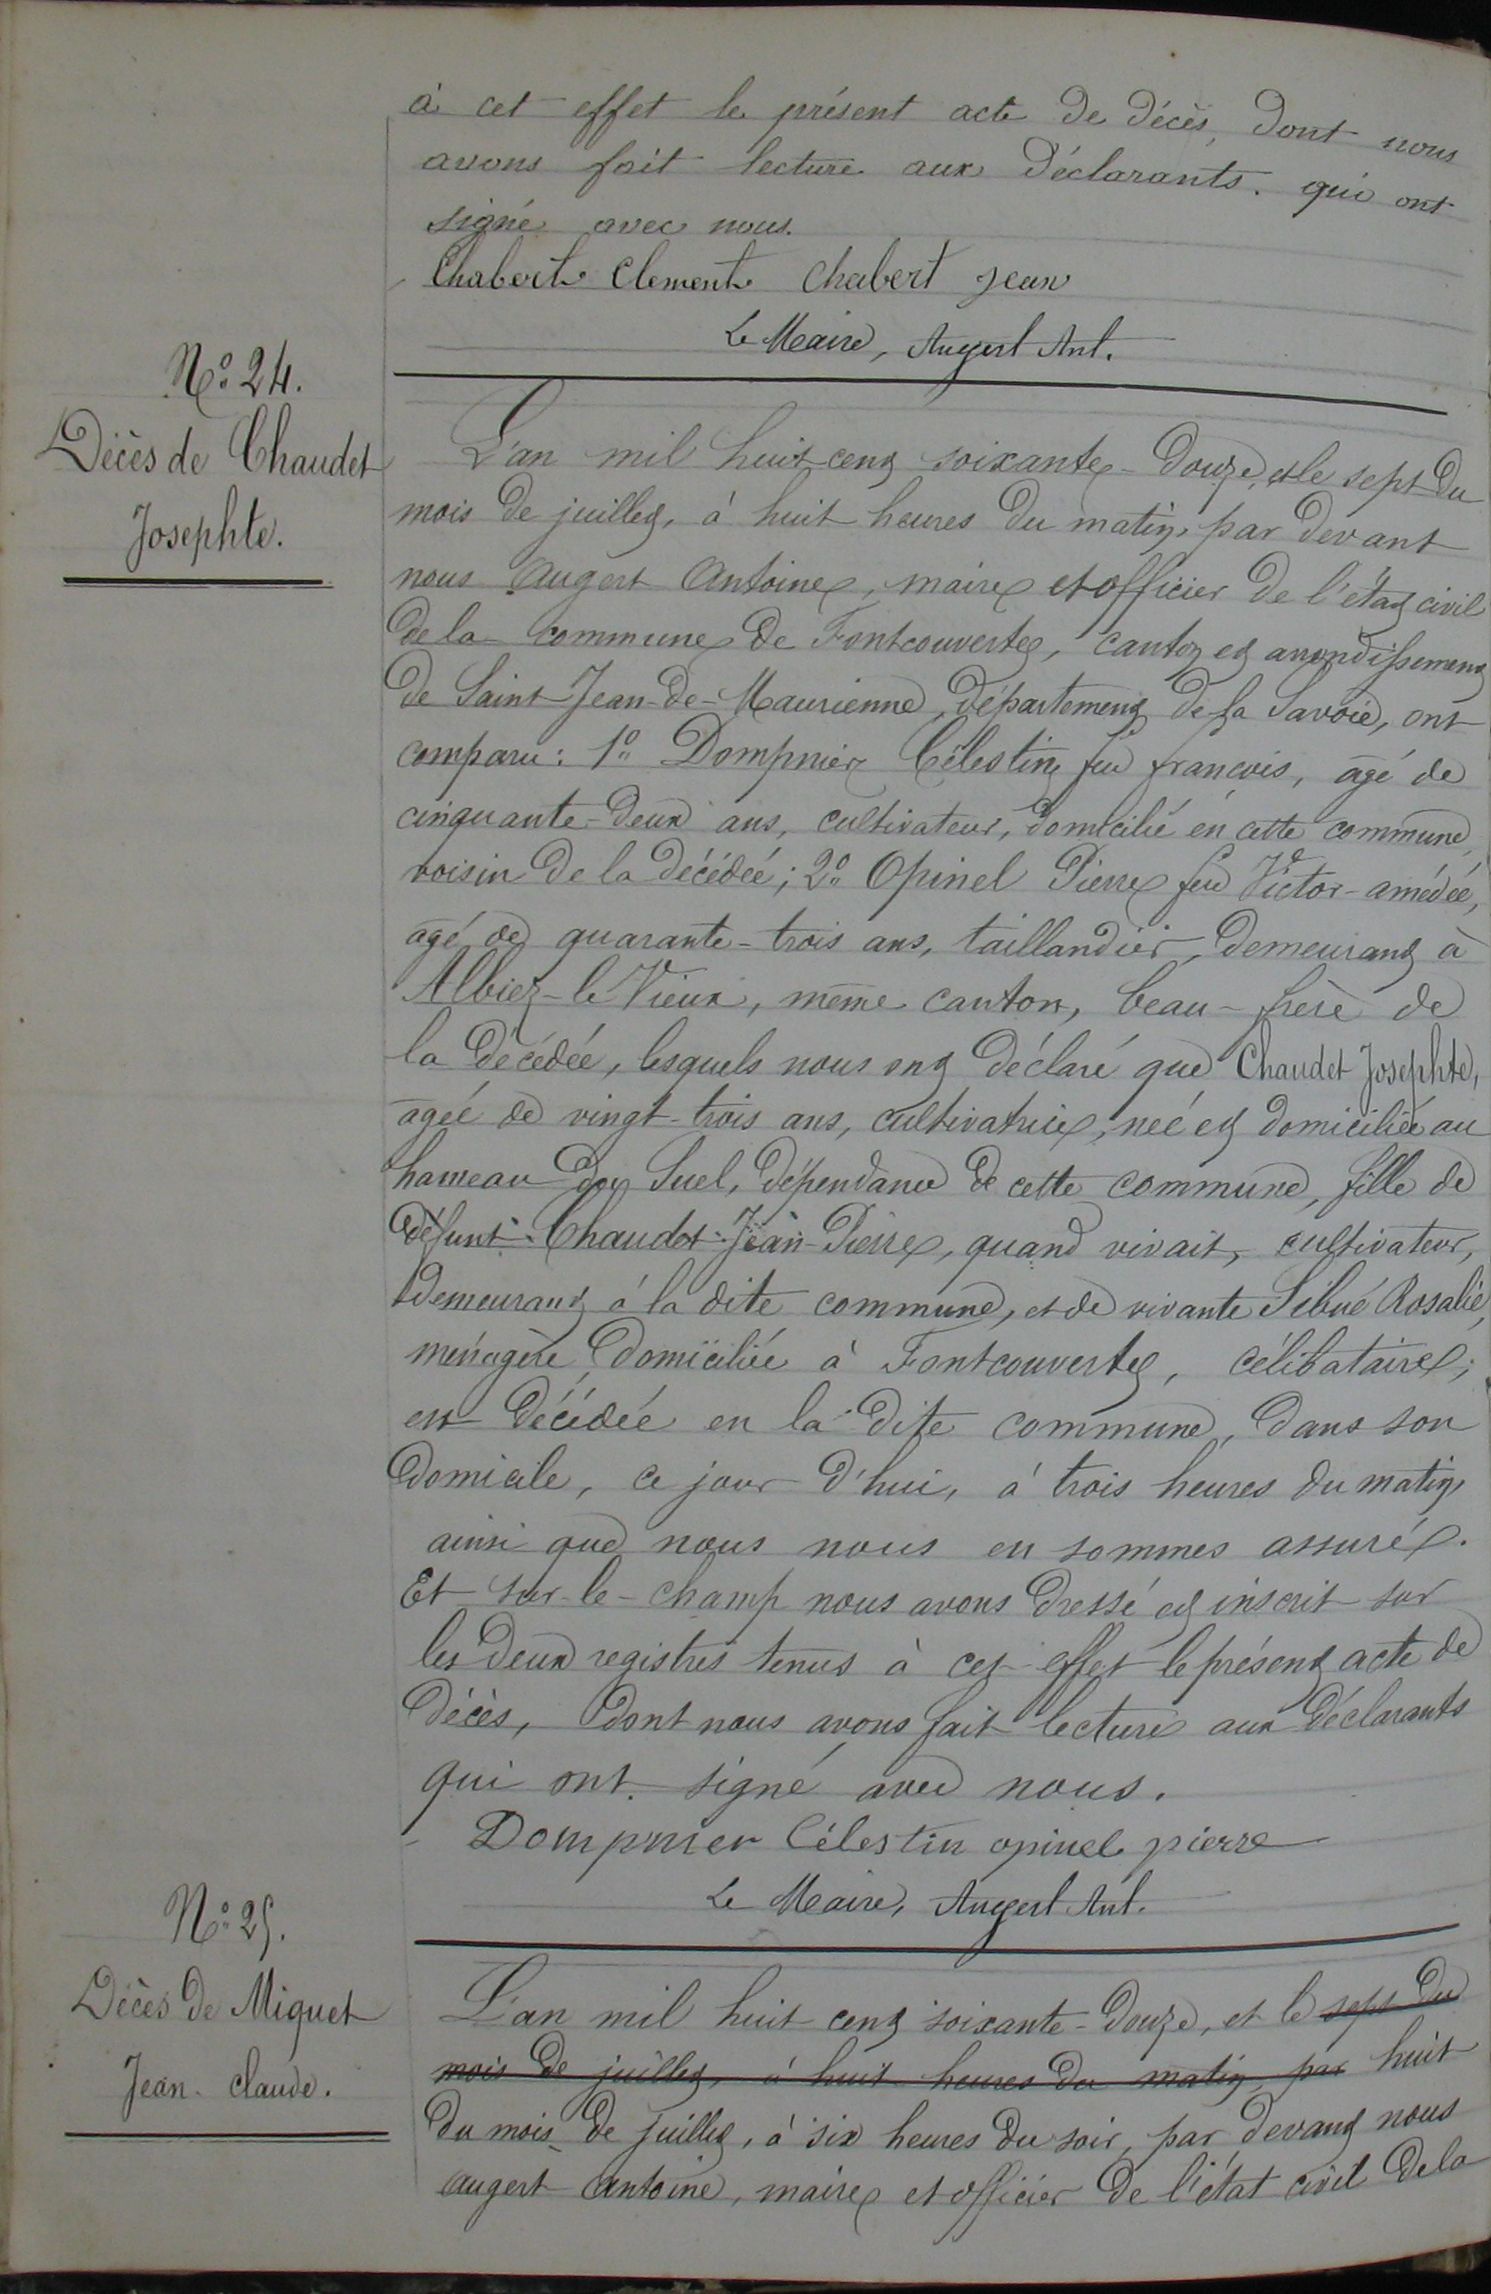 à cet effet le présent acte de décès, dont nous
avons fait lecture aux déclarants. qui ont
signé avec nous.
Chabert Clement Chabert Jean
Le Maire, Augert Ant.
N° 24.
Décès de Chaudet
Josephte.
L'an mil huit cent soixante-douze, et le sept du
mois de juillet, à huit heures du matin, par devant
nous Augert Antoine, maire et officier de l'état civil
de la commune de Fontcouverte, canton et arrondissement
de Saint-Jean-de-Maurienne, département de la Savoie, ont
comparu: 1° Dompnier Célestin feu françois, agé de
cinquante-deux ans, cultivateur, domicilié en cette commune,
voisin de la décédée; 2° Opinel Pierre feu Victor-amédée,
agé de quarante-trois ans, taillandier, demeurant à
Albiez-le Vieux, même canton, beau-frère de
la décédée, lesquels nous ont déclaré que Chaudet Josephte,
agée de vingt-trois ans, cultivatrice, née et domiciliée au
hameau du Suel, dépendance de cette commune, fille de
défunt Chaudet Jean-Pierre, quand vivait, cultivateur,
demeurant à la dite commune, et de vivante Sibué Rosalie,
ménagère, domiciliée à Fontcouverte, célibataire;
est décédée en la dite commune, dans son
domicile, ce jour d'hui, à trois heures du matin,
ainsi que nous nous en sommes assuré.
Et sur-le-champ nous avons dressé et inscrit sur
les deux registres tenus à cet effet le présent acte de
décès, dont nous avons fait lecture aux déclarants
qui ont signé avec nous.
Dompnier Célestin opinel pierre
Le Maire, Augert Ant.
N° 25.
Décès de Miquet
Jean-claude.
L'an mil huit cent soixante-douze, et le sept du
mois de juillet, à huit heures du matin, par huit
du mois de juillet, à six heures du soir, par devant nous
augert antoine, maire et officier de l'état civil de la